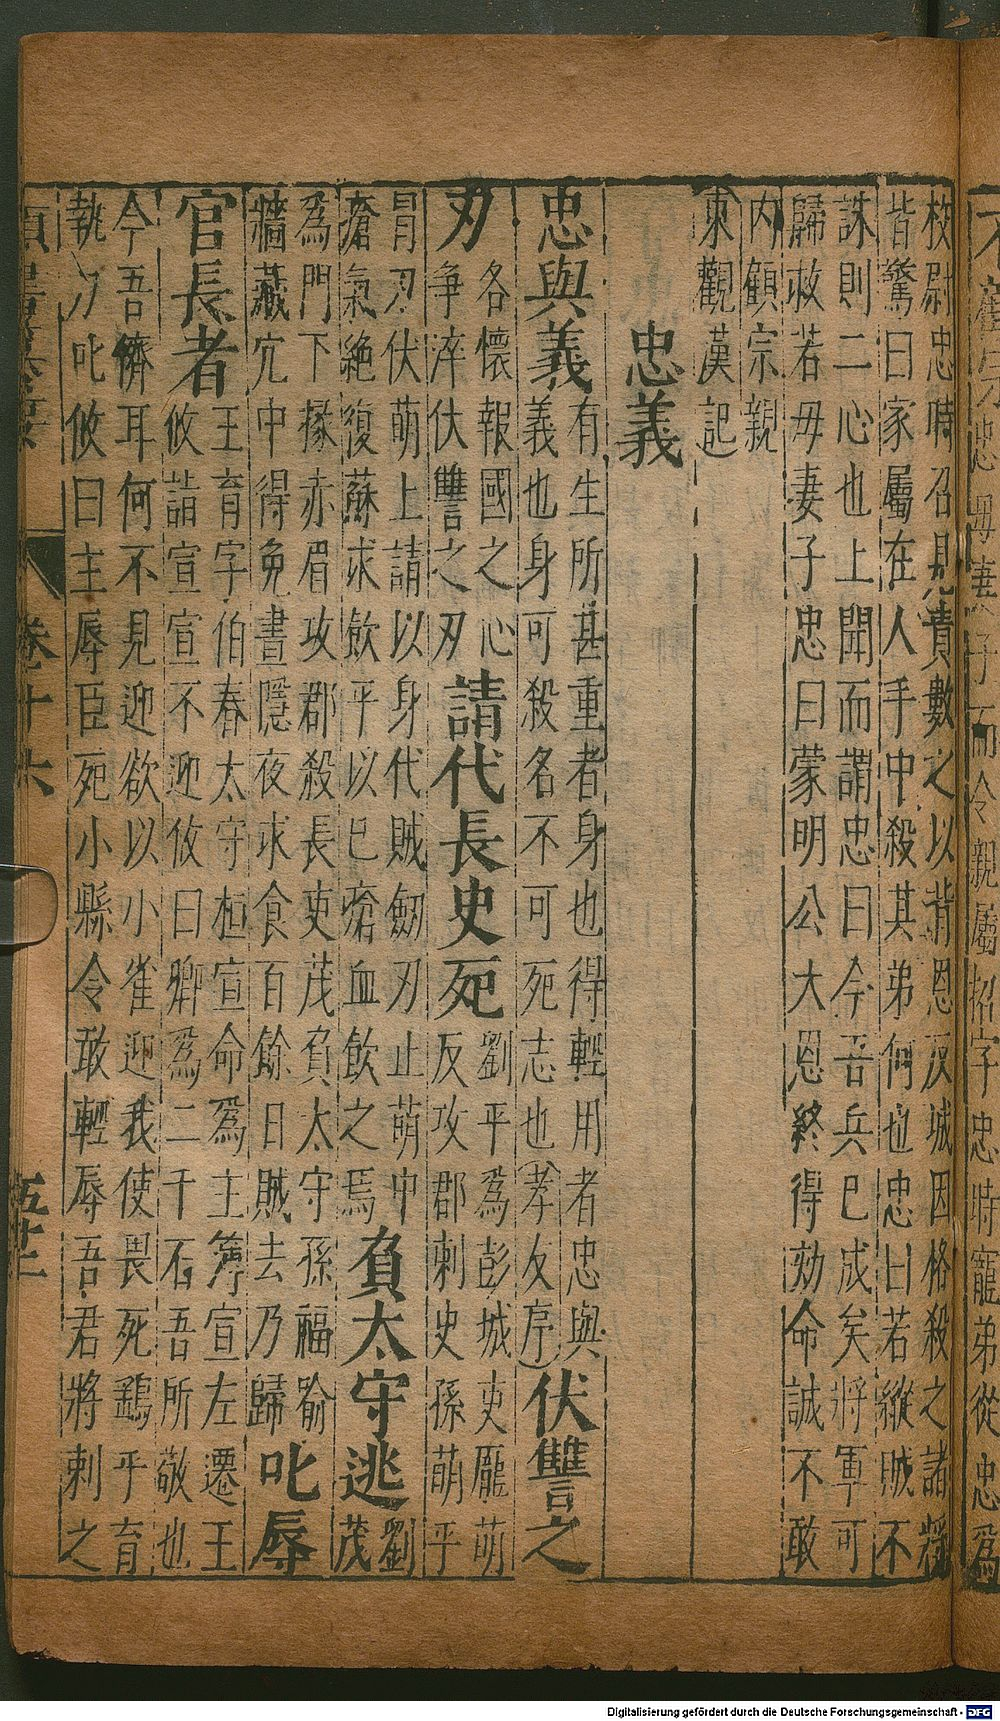 忠母妻子而令親屬招字忠時寵弟從忠爲
校尉忠時召見責數之以背恩反城因格殺之諸將
皆驚曰家屬在人手中殺其弟何也忠曰若縱賊不
誅則二心也上聞而謂忠曰今吾兵已成矣將軍可
歸救若毋妻子忠曰蒙明公大恩終得効命誠不敢
内顧宗親
東觀漢記
忠義
忠與義
有生所甚重者身也得輕用者忠與
義也身可殺名不可死志也孝友序
伏讐之
刃
各懷報國之心
争淬伏讐之刃
請代長史死
劉平爲彭城吏龐萌
反攻郡刺史孫萌平
冒刃伏萌上請以身代賊劒刃止萌中
瘡氣絶復蘇求飲平以已瘡血飲之焉
負太守逃
劉
茂
爲門下掾赤眉攻郡殺長吏茂負太守孫福踰
牆藏穴中得免晝隱夜求食百餘日賊去乃歸
叱辱
官長者
王育字伯春太守桓宣命爲主簿宣左遷王
攸詣宣宣不迎攸曰卿爲二千石吾所敬也
今吾儕耳何不見迎欲以小雀迎我使畏死鷂乎育
執刀叱攸曰主辱臣死小縣令敢輕辱吾君將刺之
卷十六
Digitalisierung gefördert durch die Deutsche Forschungsgemeinschaft - DFG